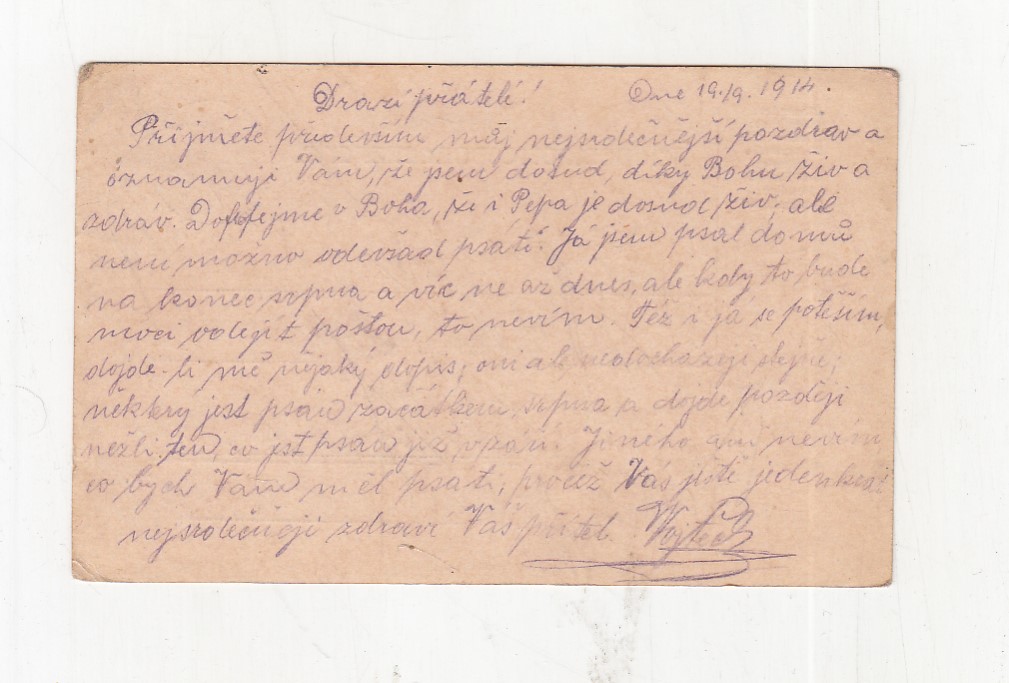 Drazí přátelé! Dne 19./9. 1914.
Přijměte především můj nejsrdečnější pozdrav a
oznamuji Vám, že jsem dosud, díky Bohu živ a
zdráv. Doufejme v Boha, že i Pepa je dosud živ, ale
není možno odevšad psáti. Já jsem psal domů
na konec srpna a víc ne až dnes, ale kdy to bude
moci odejít poštou, to nevím. Též i já se potěším,
dojde-li mě nějaký dopis; oni ale nedocházejí stejně;
některý jest psán začátkem srpna a dojde pozdeji
nežli ten, co jest psán již v září. Jiného ani nevím
co bych Vám měl psáti, pročež Vás ještě jedenkrát
nejsrdečněji zdraví Váš přítel Vojtěch